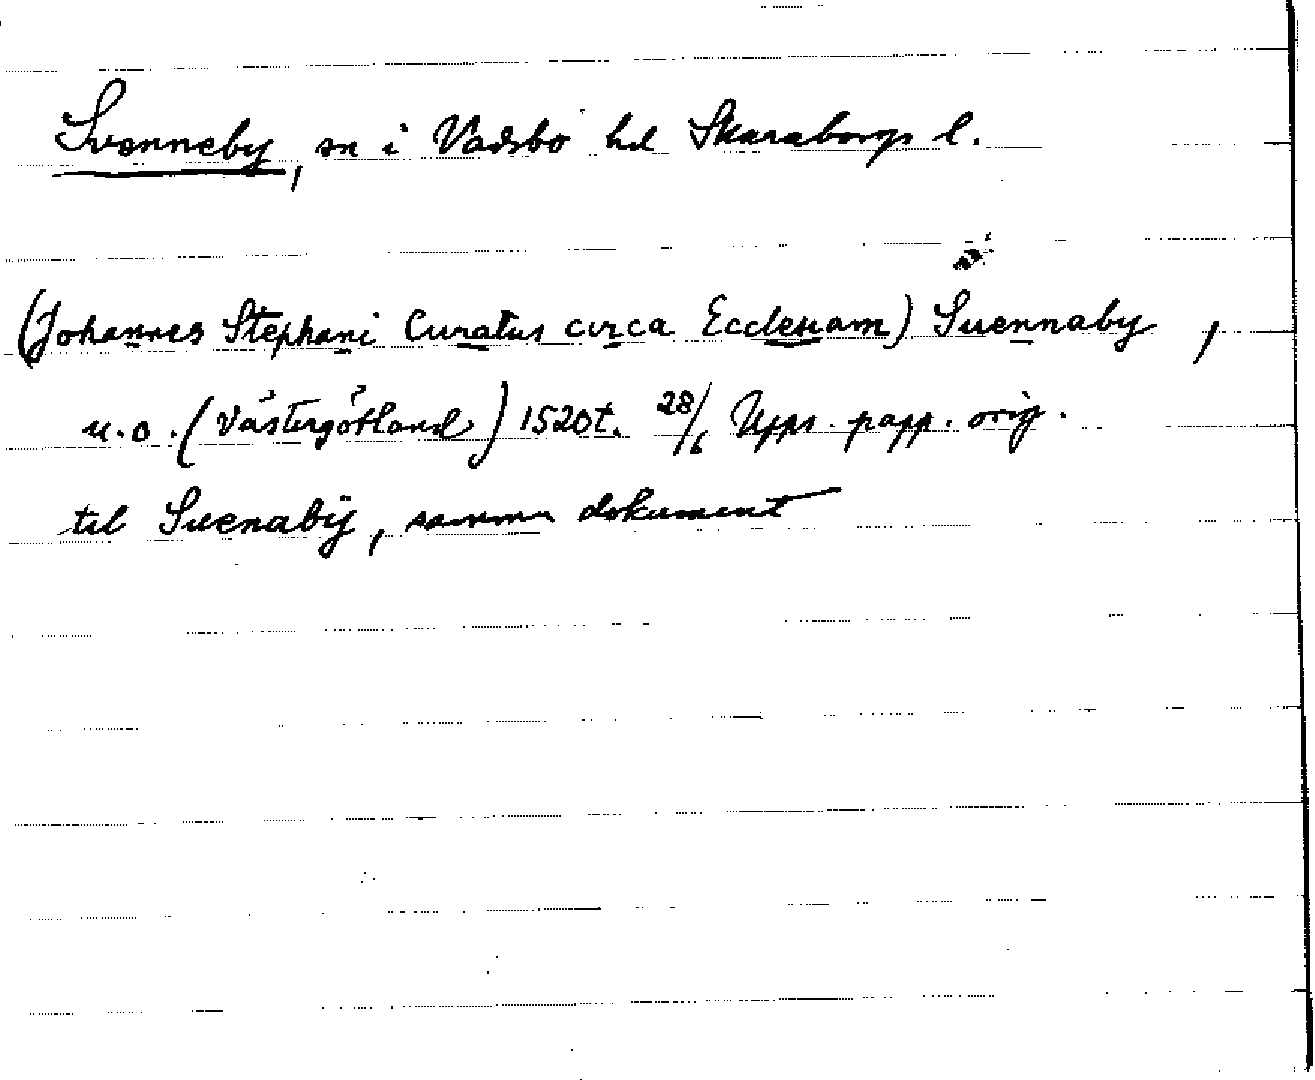 Svenneby, sn i Vadsbo hd Skaraborgs l.
(Johannes Stephani Curatus circa Ecclesiam) Suennaby,
u.o. (Västergötland) 1520t. 28/6 Upps. papp. orig.
til Suenabÿ, samma dokument